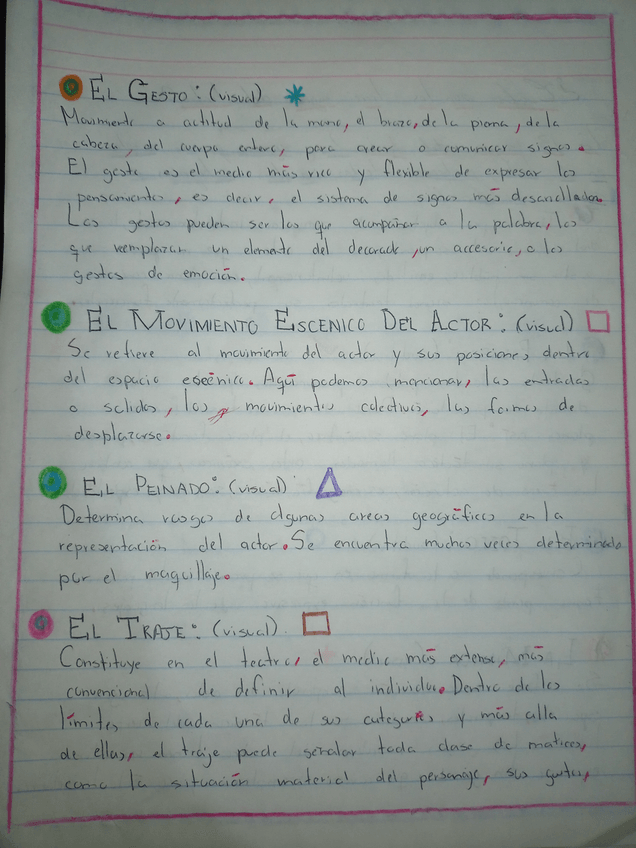 EL GESTO: (visual)
Movimiento o actitud de la mano, el brazo, de la pierna, de la
cabeza, del cuerpo entero, para crear o comunicar signos.
El gesto es el medio más rico y flexible de expresar los
pensamientos, es decir, el sistema de signos más desarrollados.
Los gestos pueden ser los que acompañan a la palabra, los
que reemplazan un elemento del decorado, un accesorio, o los
gestos de emoción.
EL MOVIMIENTO ESCENICO DEL ACTOR: (visual)
Se refiere al movimiento del actor y sus posiciones dentro
del espacio escénico. Aquí podemos mencionar, las entradas
o salidas, los, movimientos colectivos, las formas de
desplazarse.
EL PEINADO: (visual)
Determina rasgos de algunas areas geográficas en la
representación del actor. Se encuentra muchas veces determinado
por el maquillaje.
EL TRAJE: (visual)
Constituye en el teatro, el medio más extenso, más
convencional de definir al individuo. Dentro de los
límites de cada una de sus categorías y más alla
de ellas, el traje puede señalar toda clase de matices,
como la situación material del personaje, sus gustos,